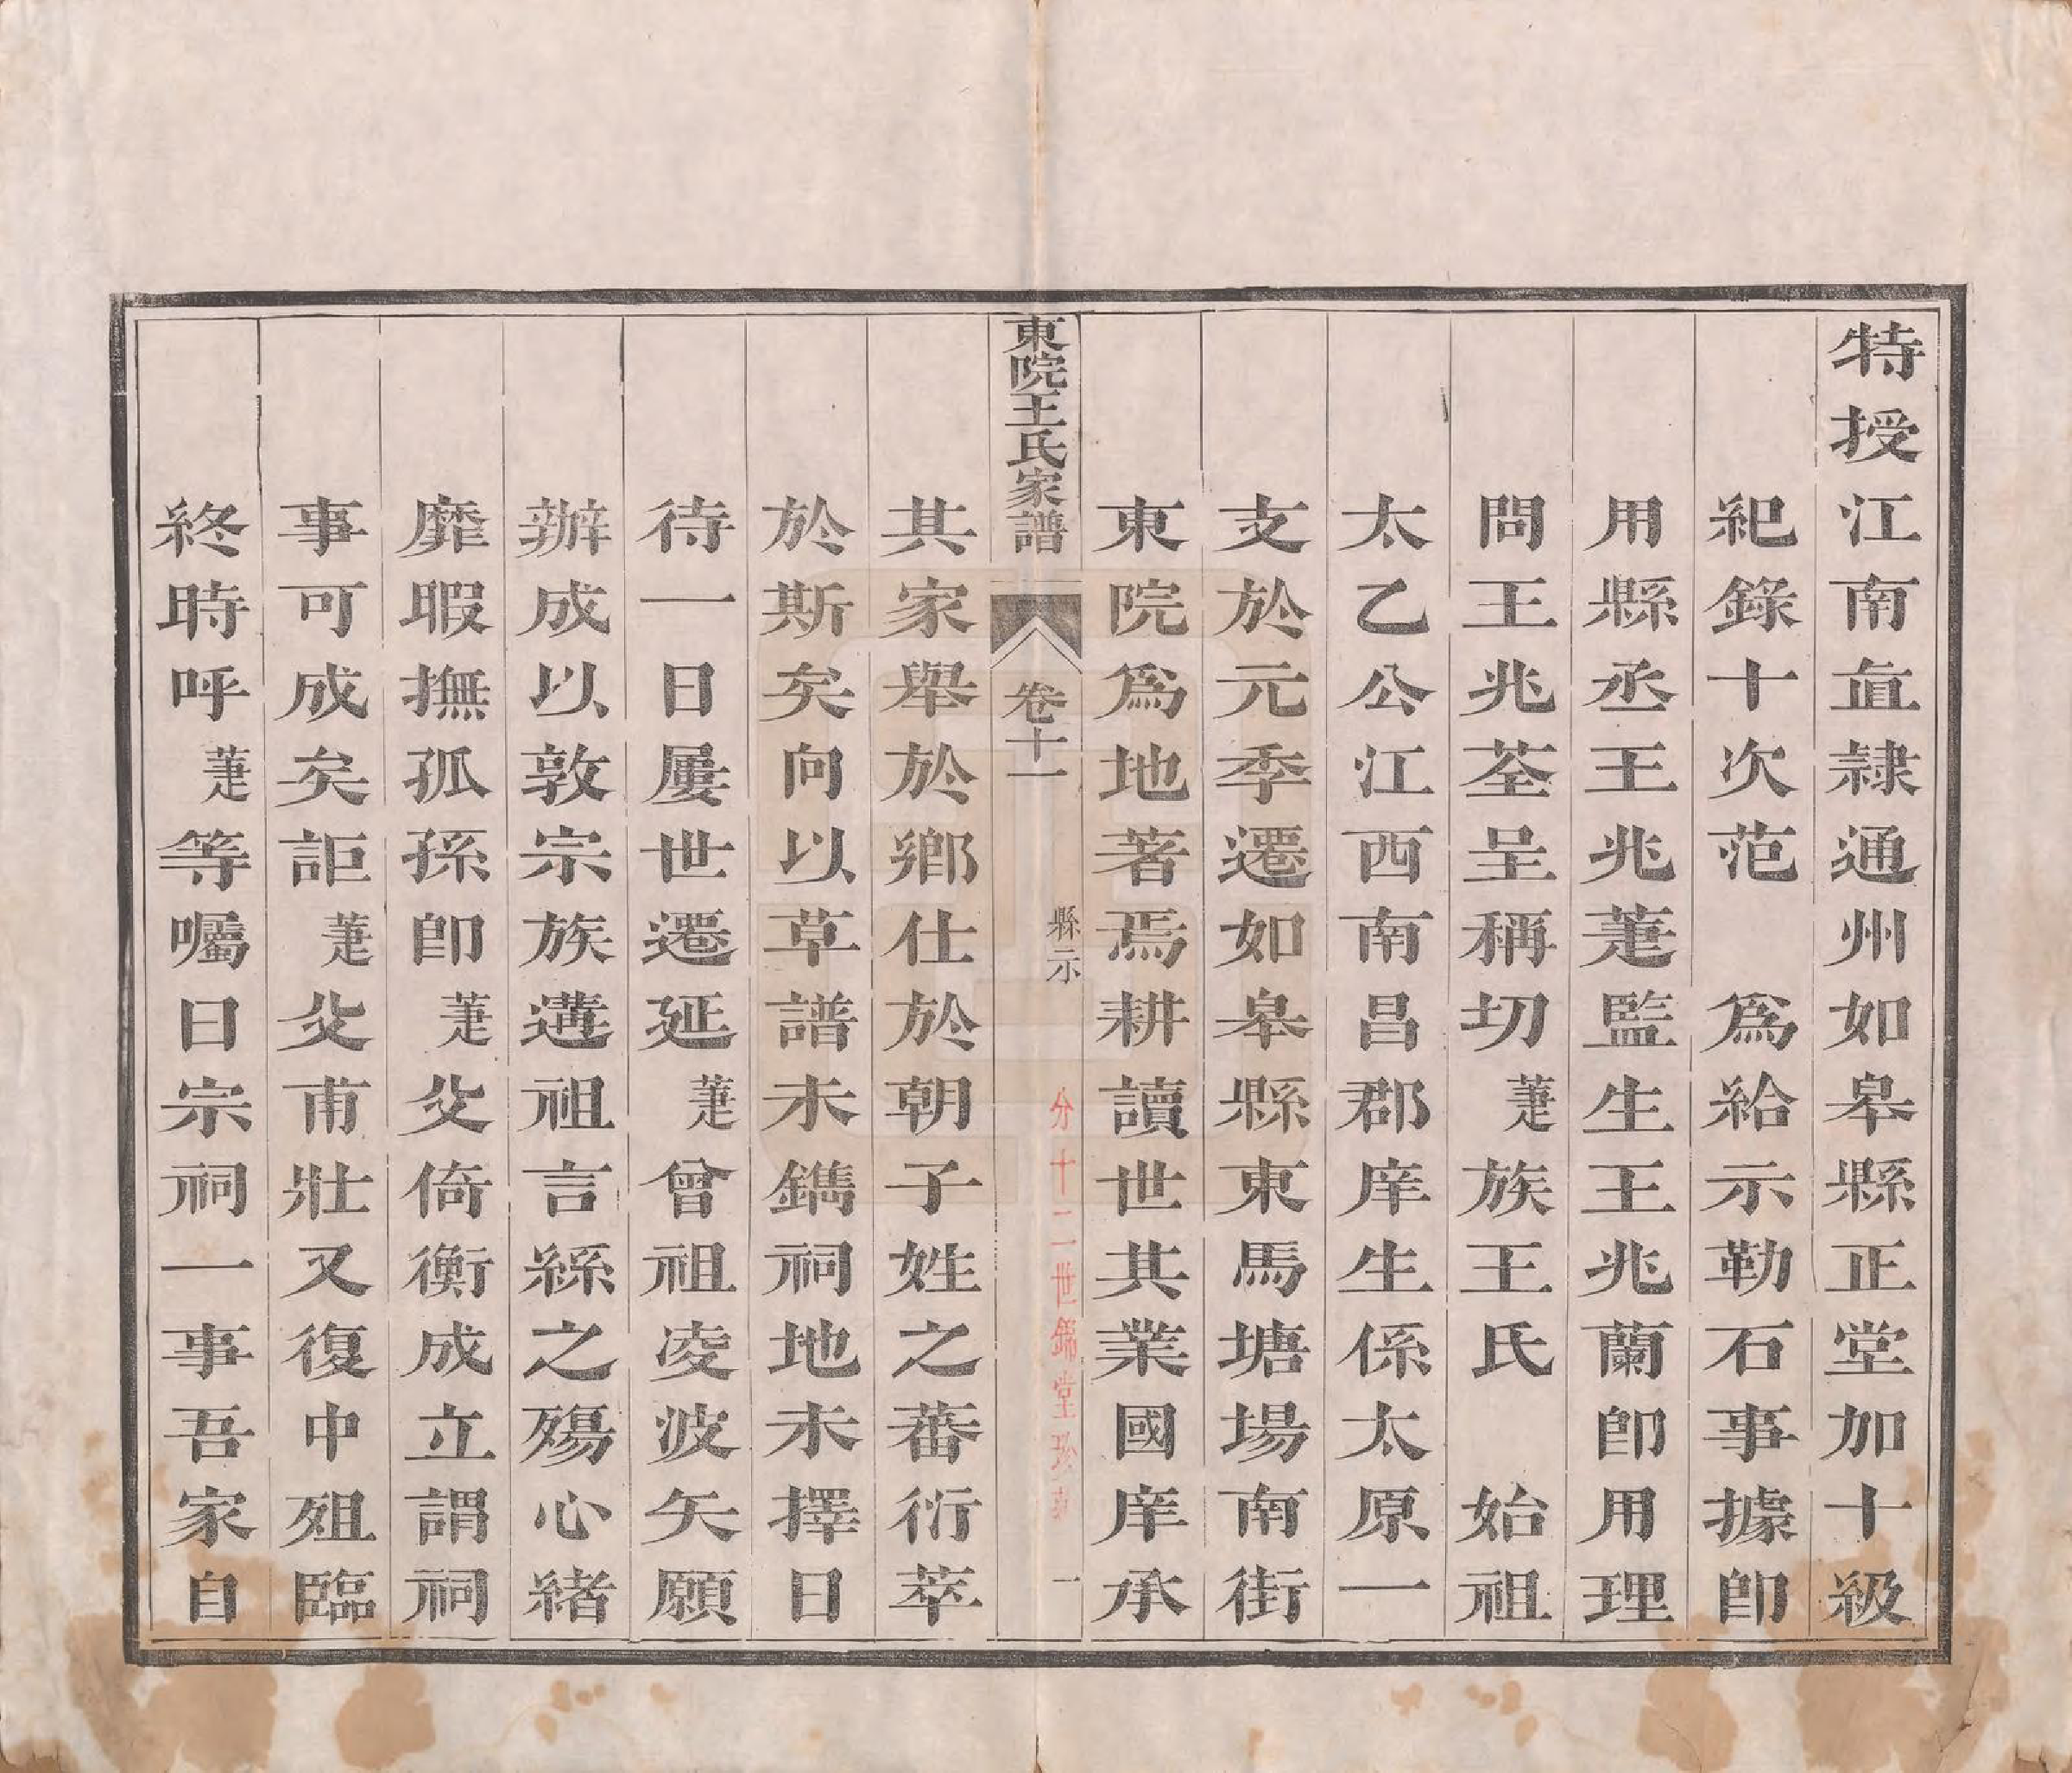 特授江南直隷通州如皋縣正堂加十級
紀錄十次范　爲給示勒石事據卽
用縣丞王兆萐監生王兆蘭卽用理
問王兆荃呈稱切萐族王氏　始祖
太乙公江西南昌郡庠生係太原一
支於元季遷如皋縣東馬塘場南街
東院爲地著焉耕讀世其業國庠承
東院王氏家譜
卷十一
縣示
分十二世錦堂珍
一
其家舉於鄉仕於朝子姓之蕃衍萃
於斯矣向以草譜未鐫祠地未擇日
待一日屢世遷延萐曾祖凌波矢願
辦成以敦宗族遘祖言綔之殤心緒
靡暇撫孤孫卽萐父倚衡成立謂祠
事可成矣詎萐父甫壯又復中殂臨
終時呼萐等囑曰宗祠一事吾家自